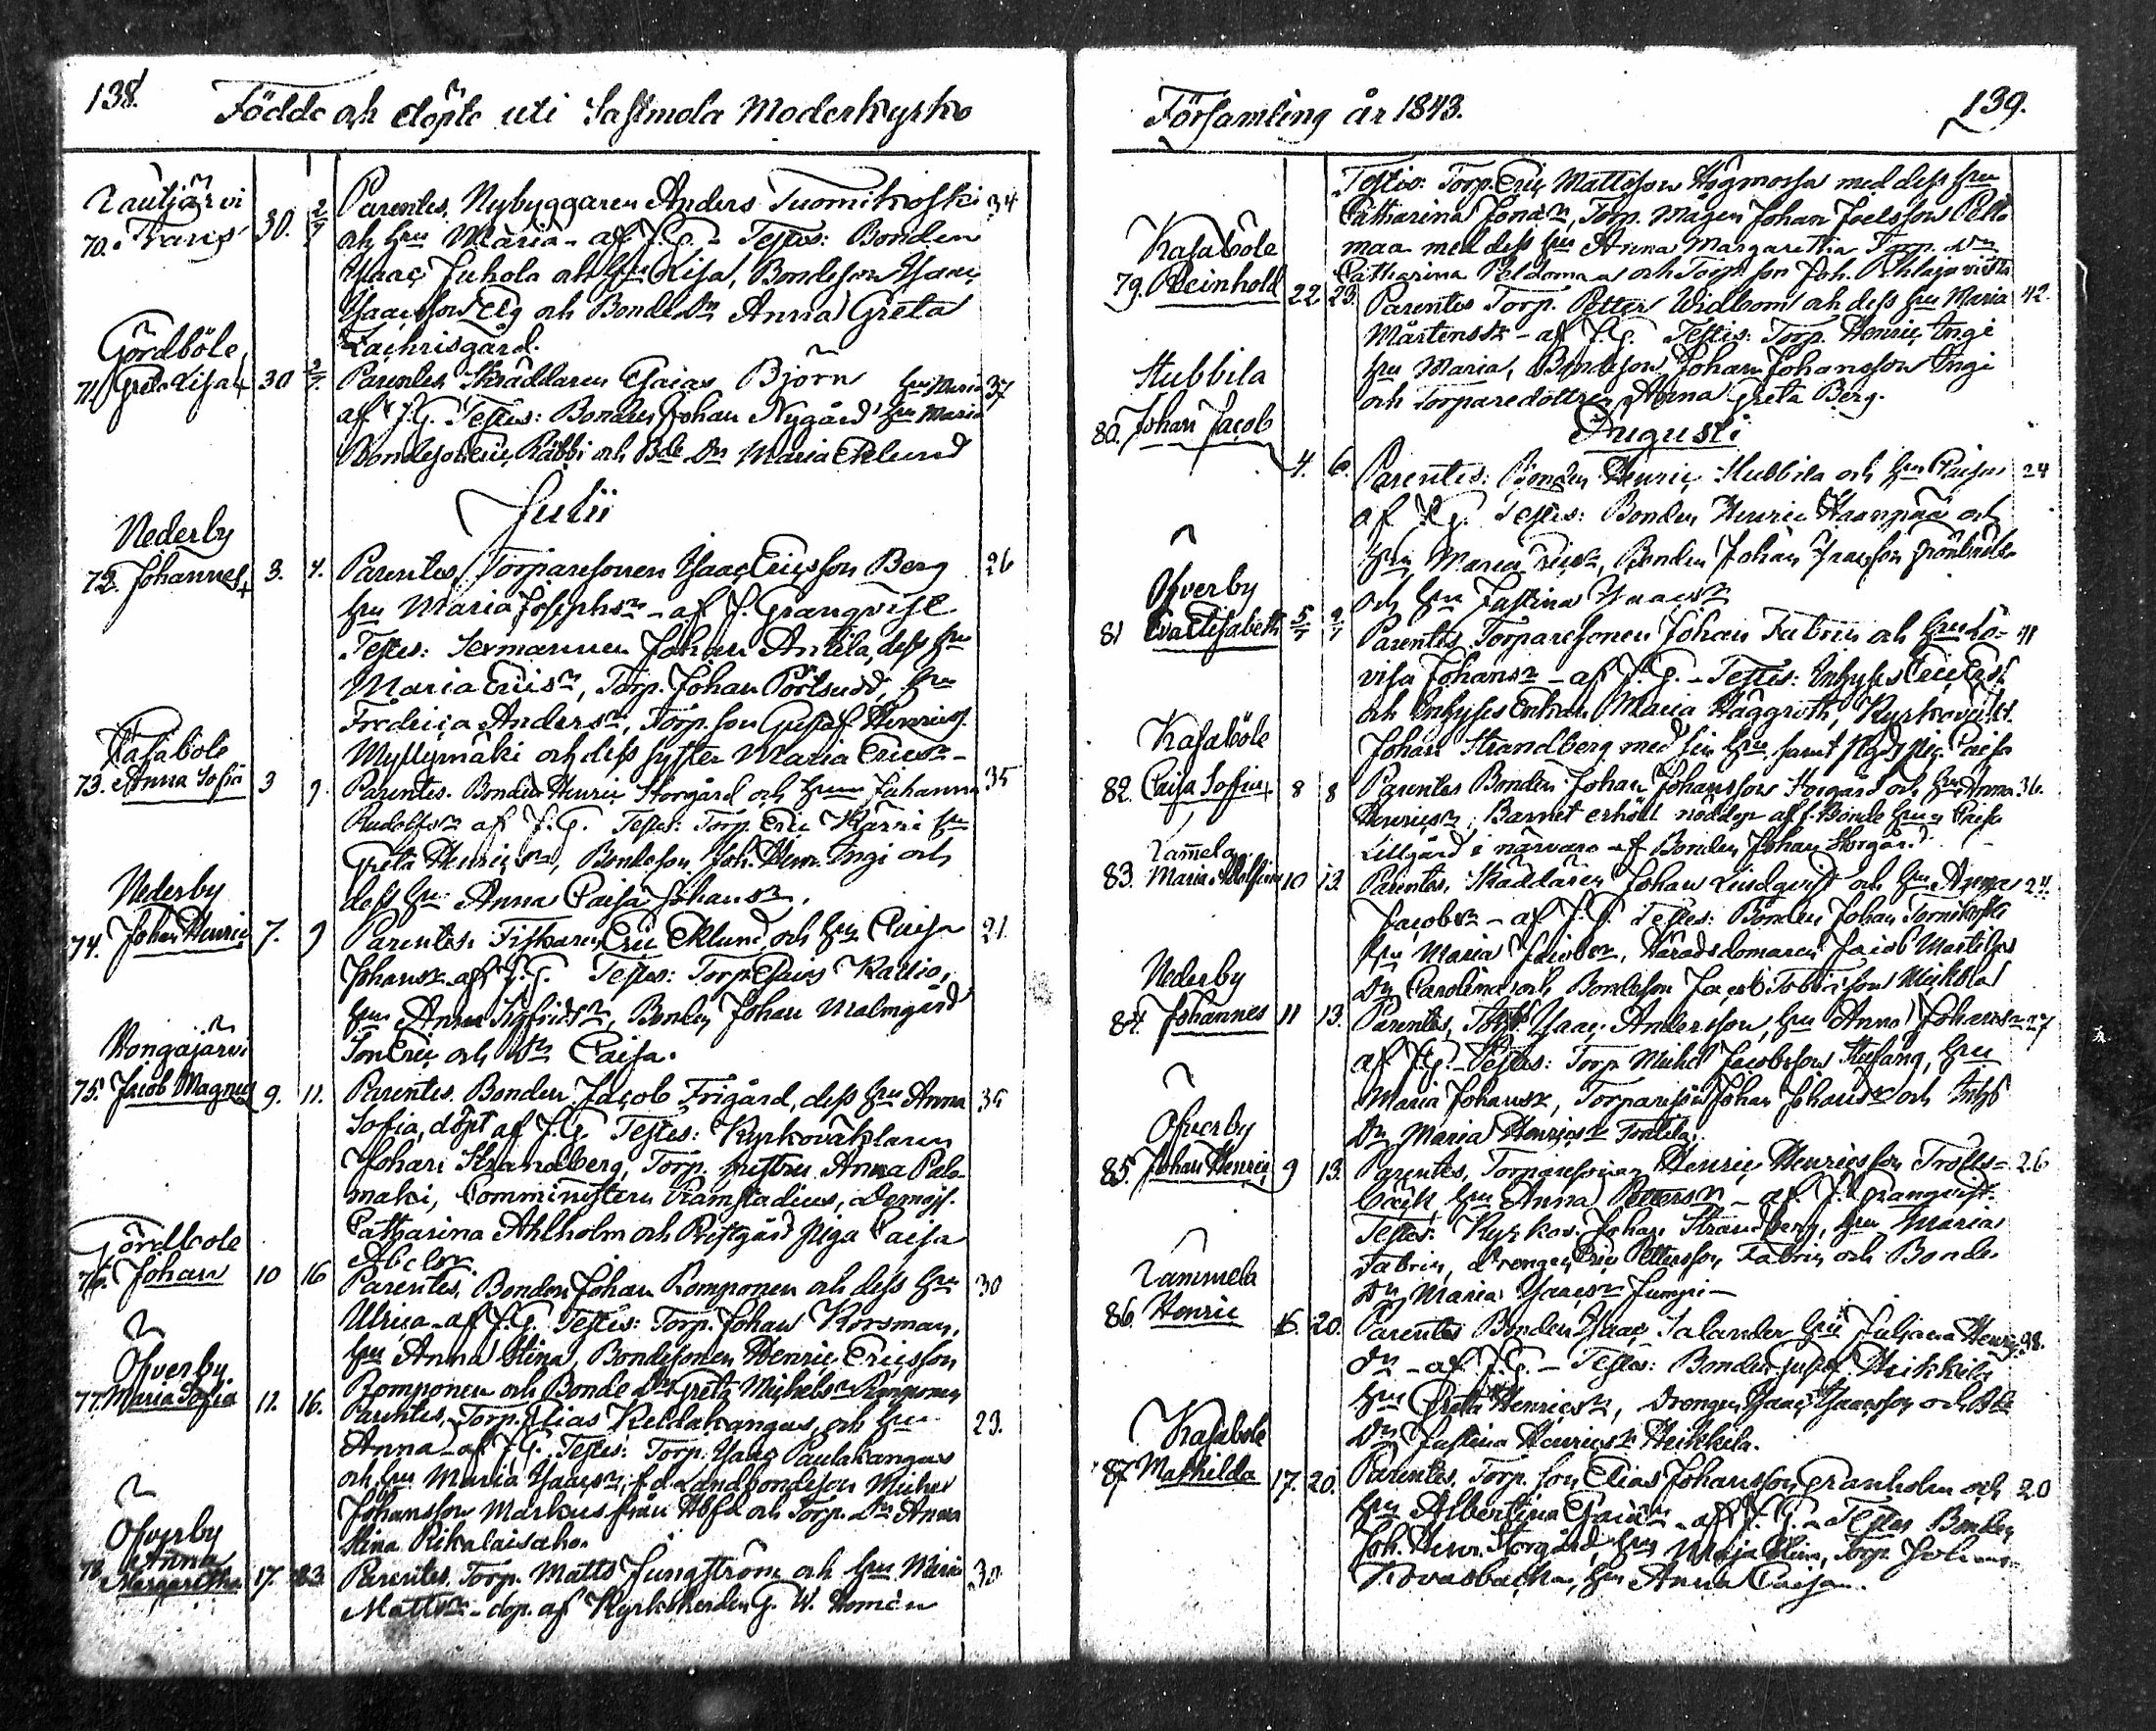 138.
Födde och döpte uti Sastmola Moderkyrko
Lautjärvi
70. Frans
30. 2/7
Parentes, Nybyggaren Anders Tuomikoski 34
och hru Maria - af J.G. - Testes: Bonden
Isaac Juhola och hru Lisa, Bondeson Isaac
Isaacsson Elg och Bonde Dr Anna Greta
Zachrisgård.
Gördböle
71. Greta Lisa
30 2/7
Parentes Skräddaren Esaias Björn hru Maria 37
af J.G. Testes: Bonden Johan Nygård hru Maria
Bondeson Eric Räbbi och Bde Dr Maria Eklund
Julii
Nederby
72. Johannes
3. 4.
Parentes, Torparesonen Isaac Ericsson Berg 26
hru Maria Josephsdr - af J. Granqvist
Testes: Sexmannen Johan Antila, dess hru
Maria Ericsdr, Torp. Johan Pörtsudd, hru
Fredrica Andersdr, Torp. son Gustaf Henricss.
Myllymäki och dess syster Maria Ericsdr -
Kasaböle
73. Anna Sofia
3 9.
Parentes. Bonden Henric Storgård och hrun Johanna 35
Rudolfsdr af J.G. Testes: Torp. Eric Kärri hru
Greta Henricsdr, Bondeson Joh. Henr. Ingi och
dess hru Anna Caisa Johansdr.
Nederby
74. Johan Henric
7. 9
Parentes: Fiskaren Eric Eklund och hru Caisa 21
Johansdr af J.G. Testes: Torp. Esaias Kallio,
hru Anna Sigfridsdr, Bonden Johan Malmgård
Son Eric och Dr Caisa.
Hongajärvi
75. Jacob Magnus
9. 11.
Parentes. Bonden Jacob Frigård, dess hru Anna 35
Sofia, döpt af J.G. Testes: Kyrkoväktaren
Johan Strandberg, Torp. hustru Anna Palo-
mäki, Comministern Framstadius, Demois.
Catharina Ahlholm och Prestgård piga Caisa
Gördböle
76. Johan
10 16
Parentes, Bonden Johan Romponen och dess hru 30
Ulrica - af J.G. Testes: Torp. Johan Korsman,
hru Anna Stina, Bondesonen Henric Ericsson
Romponen och Bonde Dr Greta Michelsdr Romponen
Öfverby.
77. Maria Sofia
11. 16.
Parentes, Torp. Elias Keldakangas och hru 23.
Anna - af J.G. Testes: Torp. Isaac Paulakangas
och hru Maria Isaacsdr, f.d. Landbondeson Michel
Johansson Markus från och Torp. Dr Anna
Stina Rikalaisaho.
Öfverby
78. Anna
Margaretha
17. 23.
Parentes. Torp. Matts Ljungström och hru Maria 30
Mattsdr - döp. af Kyrkoherden G. W. Homén
Församling år 1843.
139.
Testes: Torp. Eric Mattsson Högmossa med dess hru
Catharina Jonædr, Torp. mågen Johan Joelsson Pelto
maa med dess hru Anna Margaretha Torp. Dr
Catharina Peldomaa och Torp. son Joh.
Kasaböle
79. Reinhold
22 23.
Parentes Torp. Petter Widbom och dess hru Maria 42.
Mårtensdr - af J.G. Testes: Torp. Henric Ingi
hru Maria, Bondeson Johan Johansson Ingi
och Torparedottren Anna Greta Berg.
Augusti
Stubbila
80. Johan Jacob
4. 6.
Parentes: Bonden Henric Stubbila och hru Caisa 24
af J.G. Testes: Bonden Henric Haangpää och
hru Maria Ericsdr, Bonden Johan
och hru Justina Isaacsdr
Öfverby
81 Eva Elisabeth
Parentes, Torparesonen Johan Fabrin och hru Lo- 41
visa Johansdr - af J.G. - Testes: Inhyses Eric
och Inhyses Enkan Maria Häggroth, Kyrkovächt.
Johan Strandberg med sin hru samt Caisa
Kasaböle
82. Caisa Sofia
8 8
Parentes Bonden Johan Johansson Storgård och hru Anna 36.
Henricsdr; Barnet erhöll nöddop af f. Bonde hrun Caisa
Lillgård i närvaro af Bonden Johan Storgård.
Lam̄ela
83. Maria
10 13.
Parentes, Skräddaren Johan Lindqvist och hru Agena 24.
Jacobsdr - af J.G. Testes: Bonden Johan Tornikoski
hru Maria Jacobsdr, Häradsdomaren Jacob Martilas
Dr Carolina och Bondeson Jacob Tobiasson Mickola
Nederby
84. Johannes
11 13.
Parentes, Isaac Andersson, hru Anna Johansdr 27
af J.G. - Testes: Torp. Michel Jacobsson Stufäng, hru
Maria Johansdr, Torpareson Johan Johansdr och Inhys
Dr Maria Henricsdr Tontila.
Öfverby
85. Johan Henric
9 13.
Parentes, Torparesonen Henric Henricsson Trolls- 26
back, hru Anna Pettersdr - af J. Granqvist.
Testes: Kyrkov. Johan Strandberg, hru Maria
Fabrin, drengen Eric Pettersson Fabrin och Bonde
Dr Maria Isaacsdr Jumpi -
Lammela
86. Henric
16. 20.
Parentes Bonden Isaac Salander hru Juliana Henrics 38.
Dr - af J.G. - Testes: Bonden Gustaf Heikkilä
hru Greta Henricsdr, Drengen Isaac Isaacsson och Bde
Dr Justina Henricsdr Heikkila.
Kasaböle
87. Mathilda
17. 20.
Parentes, Torp. son Elias Johansson Granholm och 20
hru Albertina Esaiædr - af J.G. - Testes Bonden
Joh. Henr. Storgård, hru Maja Stina, Torp. Johan
hru Anna Caisa.